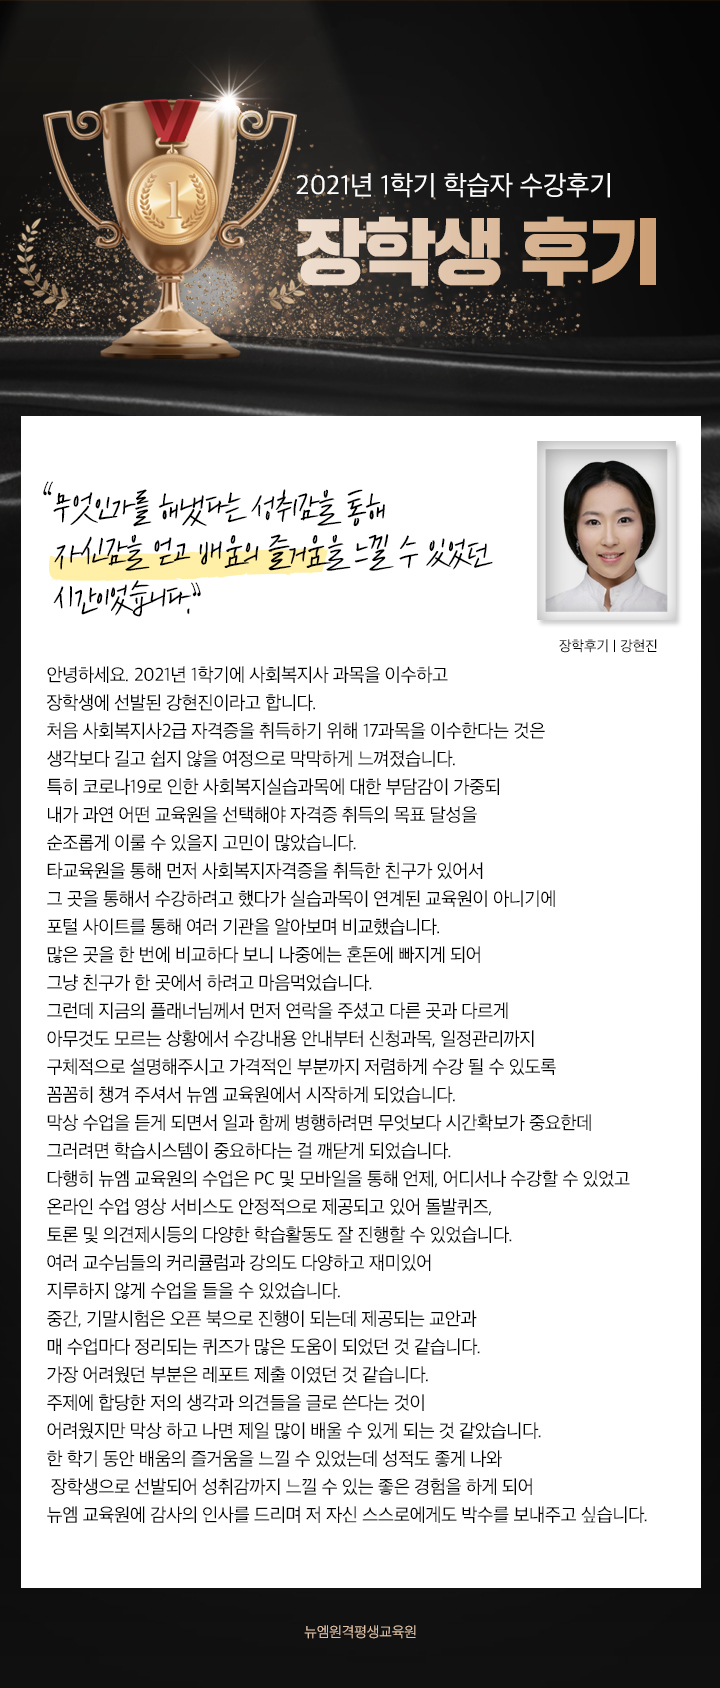 1
2021년 1학기 학습자 수강후기
장학생 후기
“무엇인가를 해냈다는 성취감을 통해
자신감을 얻고 배움의 즐거움을 느낄 수 있었던
시간이었습니다.”
장학후기 | 강현진
안녕하세요. 2021년 1학기에 사회복지사 과목을 이수하고
장학생에 선발된 강현진이라고 합니다.
처음 사회복지사2급 자격증을 취득하기 위해 17과목을 이수한다는 것은
생각보다 길고 쉽지 않을 여정으로 막막하게 느껴졌습니다.
특히 코로나19로 인한 사회복지실습과목에 대한 부담감이 가중되
내가 과연 어떤 교육원을 선택해야 자격증 취득의 목표 달성을
순조롭게 이룰 수 있을지 고민이 많았습니다.
타교육원을 통해 먼저 사회복지자격증을 취득한 친구가 있어서
그 곳을 통해서 수강하려고 했다가 실습과목이 연계된 교육원이 아니기에
포털 사이트를 통해 여러 기관을 알아보며 비교했습니다.
많은 곳을 한 번에 비교하다 보니 나중에는 혼돈에 빠지게 되어
그냥 친구가 한 곳에서 하려고 마음먹었습니다.
그런데 지금의 플래너님께서 먼저 연락을 주셨고 다른 곳과 다르게
아무것도 모르는 상황에서 수강내용 안내부터 신청과목, 일정관리까지
구체적으로 설명해주시고 가격적인 부분까지 저렴하게 수강 될 수 있도록
꼼꼼히 챙겨 주셔서 뉴엠 교육원에서 시작하게 되었습니다.
막상 수업을 듣게 되면서 일과 함께 병행하려면 무엇보다 시간확보가 중요한데
그러려면 학습시스템이 중요하다는 걸 깨닫게 되었습니다.
다행히 뉴엠 교육원의 수업은 PC 및 모바일을 통해 언제, 어디서나 수강할 수 있었고
온라인 수업 영상 서비스도 안정적으로 제공되고 있어 돌발퀴즈,
토론 및 의견제시등의 다양한 학습활동도 잘 진행할 수 있었습니다.
여러 교수님들의 커리큘럼과 강의도 다양하고 재미있어
지루하지 않게 수업을 들을 수 있었습니다.
중간, 기말시험은 오픈 북으로 진행이 되는데 제공되는 교안과
매 수업마다 정리되는 퀴즈가 많은 도움이 되었던 것 같습니다.
가장 어려웠던 부분은 레포트 제출 이였던 것 같습니다.
주제에 합당한 저의 생각과 의견들을 글로 쓴다는 것이
어려웠지만 막상 하고 나면 제일 많이 배울 수 있게 되는 것 같았습니다.
한 학기 동안 배움의 즐거움을 느낄 수 있었는데 성적도 좋게 나와
장학생으로 선발되어 성취감까지 느낄 수 있는 좋은 경험을 하게 되어
뉴엠 교육원에 감사의 인사를 드리며 저 자신 스스로에게도 박수를 보내주고 싶습니다.
뉴엠원격평생교육원